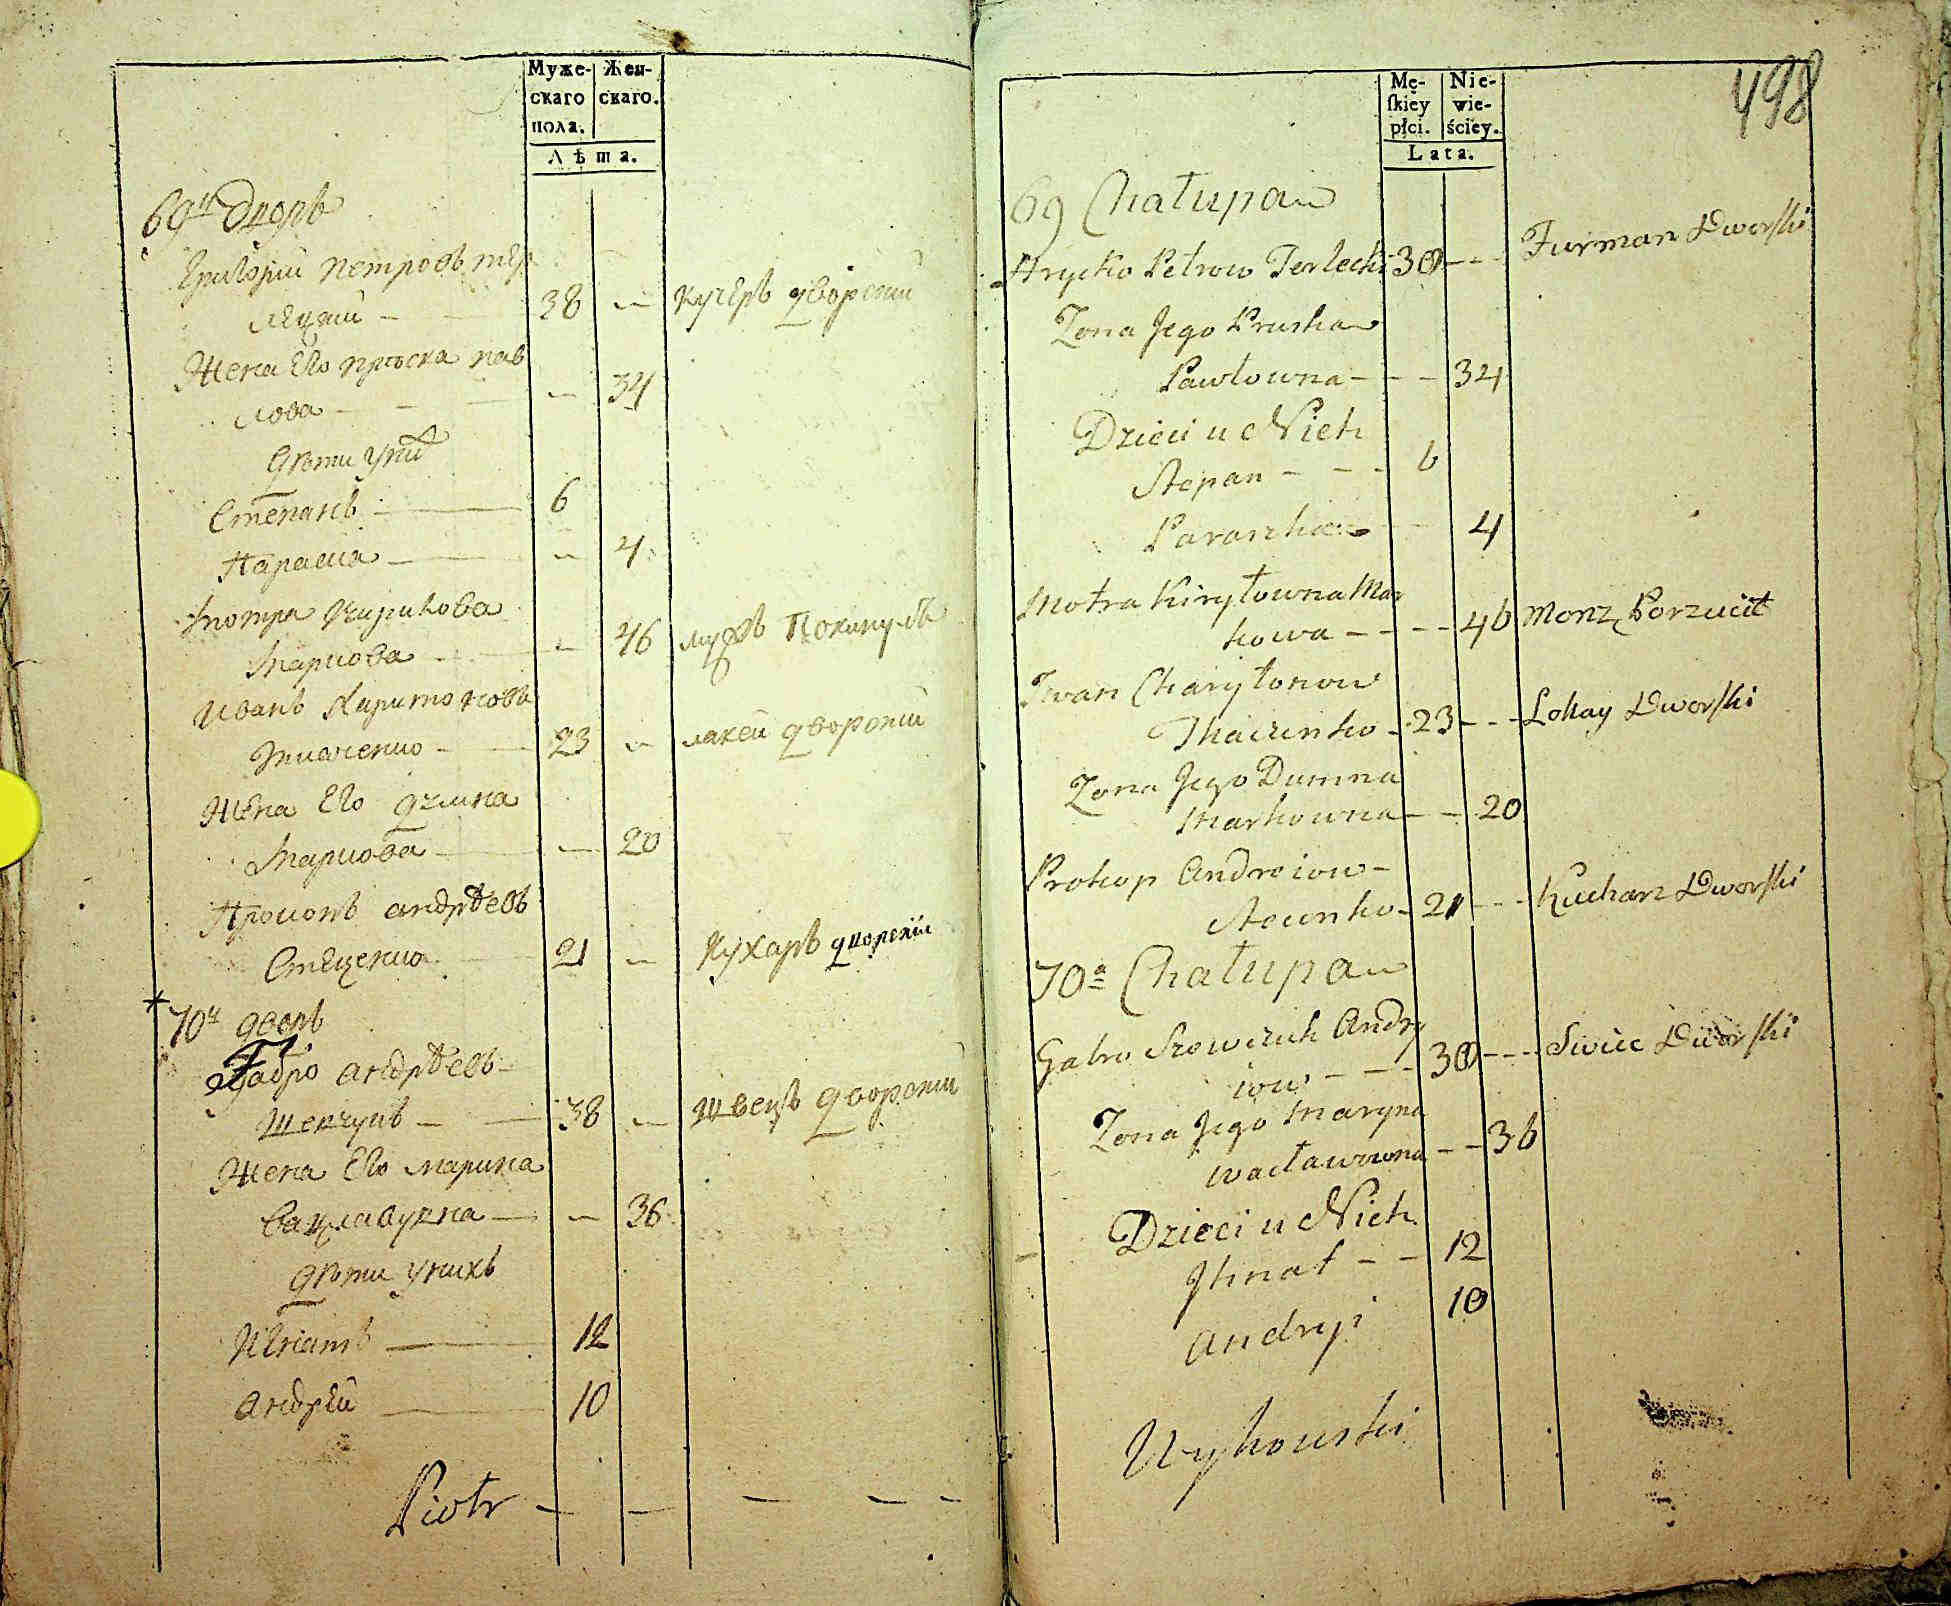 Муже- Жен-
скаго скаго.
пола.
Лѣта.
69й дворъ
Григорій Петровъ Тер
лецкий 38 — кучеръ дворский
Жена Его Прыска пав
лова — 34
дѣти у них
Степанъ 6
Параска — 4
Мотра Кирилова
Маркова — 46 мужъ покинулъ
Иванъ Харитоновъ
Ткаченко 23 — лакей дворский
Жена Его Думна
Маркова — 20
Прокопъ андрѣевъ
Стеценко 21 — Кухаръ дворский
70й дворъ
Габро андрѣевъ
Шевчукъ — 38 — Швецъ дворский
Жена Его марина
Вацлавувна — 36
дѣти у нихъ
Игнатъ 12
андрей 10
Piotr — — — — —
498
Mę- Nie-
ſkiey wie-
płci. ściey.
Lata.
69 Chałupa
Hrycko Petrow Terlecki 38 --- Furman Dworſki
Zona Jego Pruska
Pawłowna - - - 34
Dzieci u Nich
Stepan - - - 6
Paraszka - - 4
Motra Kiryłowna Mar
kowa - - - - 46 Monz Porzucił
Iwan Charytonow
Tkaczenko - 23 - - - Lokay Dworſki
Zona Jego Dumna
Markowna - - 20
Prokop Andreiow -
Stecenko - 21 - - - Kucharz Dworſki
70a Chałupa
Gabro Szewczuk Andry
iow - - - 38 - - - Swiec Dworſki
Zona Jego Maryna
Wacławowna - - 36
Dzieci u Nich
Ihnat - - 12
Andryi 10
Wykowski